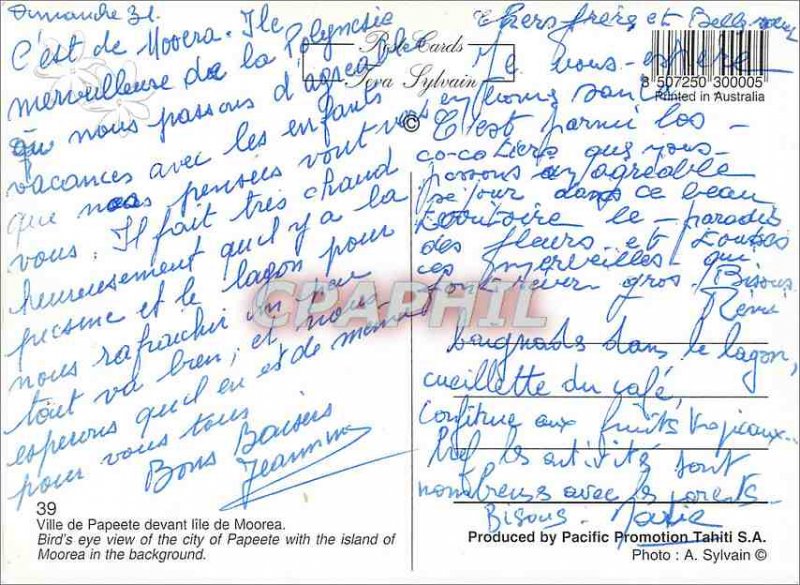 Dimanche 31.
C'est de Moorea. Ile
merveilleuse de la Polynésie
que nous passons d'agréables
vacances avec les enfants
que nos pensées vont vers
vous. Il fait très chaud
heureusement qu'il y a la
piscine et le lagon pour
nous rafraichir un peu
tout va bien, et nous
esperons qu'il en est de meme
pour vous tous
Bons Baisers
Jeannine
PostCards
Teva Sylvain
8 507250 300005
Printed in Australia
©
Chers frère et Belle soeur
Je vous espère
en bonne santé
C'est parmi les
cocotiers que nous
passons un agréable
séjour dans ce beau
territoire le paradis
des fleurs et toutes
ces merveilles qui
font rever gros Bisous
Rémi
baignade dans le lagon,
cueillette du café,
Confiture aux fruits tropicaux...
Bref les activités sont
nombreuses avec les parents.
Bisous.
CPAPHIL
39
Ville de Papeete devant lîle de Moorea.
Bird's eye view of the city of Papeete with the island of
Moorea in the background.
Produced by Pacific Promotion Tahiti S.A.
Photo : A. Sylvain ©